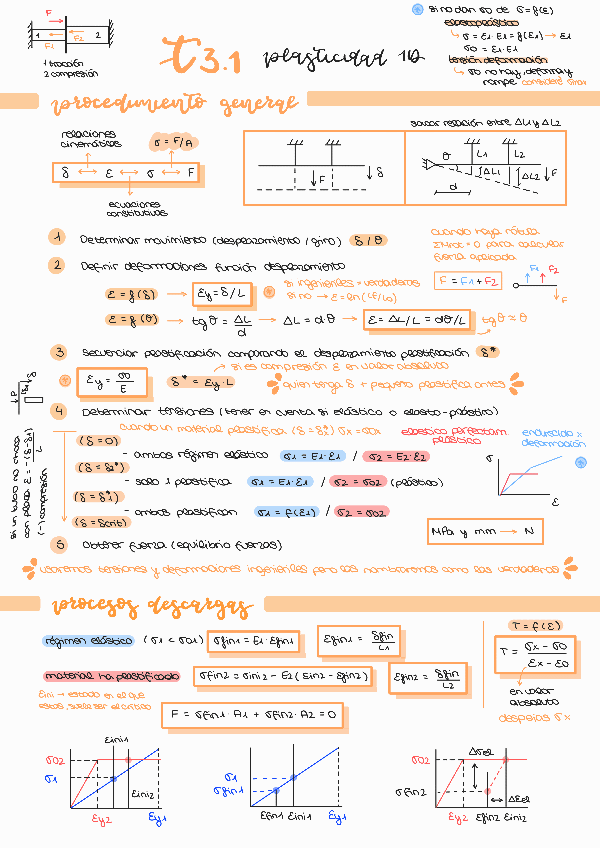 F
1
2
F1
F2
1 tracción
2 compresión
T3.1 plasticidad 1D
si no dan σo de σ=f(ε)
elastoplástico
↳ σ = E1·ε1 = f(ε1) → ε1
σo = E1·ε1
tensión deformación
↳ σo no hay, deforma y
rompe
procedimiento general
relaciones
cinemáticas
σ = F/A
δ ↔ ε ↔ σ ↔ F
ecuaciones
constitutivas
F
δ
sacar relación entre ΔL1 y ΔL2
θ
L1
L2
ΔL1
ΔL2
F
d
1 Determinar movimiento (desplazamiento/giro) δ/θ
cuando haya rótula
ΣMrot = 0 para calcular
fuerza aplicada
2 Definir deformaciones función desplazamiento
F = F1 + F2
F1
F2
F
ε = f(δ) → εy = δ/L
si ingenieriles = verdaderas
si no → ε = ln(Lf/Lo)
ε = f(θ) → tgθ = ΔL/d → ΔL = dθ → ε = ΔL/L = dθ/L
tgθ ≈ θ
3 Secuenciar plastificación comparando el desplazamiento plastificación δ*
si es compresión ε en valor absoluto
εy = σo/E
δ* = εy·L
quien tenga δ* pequeño plastifica antes
4 Determinar tensiones (tener en cuenta si elástico o elasto-plástico)
cuando un material plastifica (δ = δ*) σx = σox
elástico perfectam.
plástico
endurecido x
deformación
(δ = 0)
- ambos régimen elástico σ1 = E1·ε1 / σ2 = E2·ε2
- solo 1 plastifica σ1 = E1·ε1 / σ2 = σo2 (plástico)
- ambos plastifican σ1 = f(ε1) / σ2 = σo2
(δ = δcrit)
σ
ε
si un tubo no toca
(-) compresión
MPa y mm → N
5 Obtener fuerza (equilibrio fuerzas)
usaremos tensiones y deformaciones ingenieriles pero las nombraremos como las verdaderas
procesos descargas
régimen elástico (σ1 < σo1) σfin1 = E1·εfin1
εfin1 = δfin/L1
material ha plastificado σfin2 = σini2 - E2(εini2 - εfin2)
εfin2 = δfin/L2
εini → estado en el que
estás, suele ser el crítico
F = σfin1·A1 + σfin2·A2 = 0
T = f(ε)
T = σx - σo / εx - εo
en valor
absoluto
despejas σx
εini1
σo2
σ1
εini2
εy2
εy1
σ1
σfin1
εfin1 εini1 εy1
σo2
Δσe2
σfin2
Δεe2
εy2 εfin2 εini2